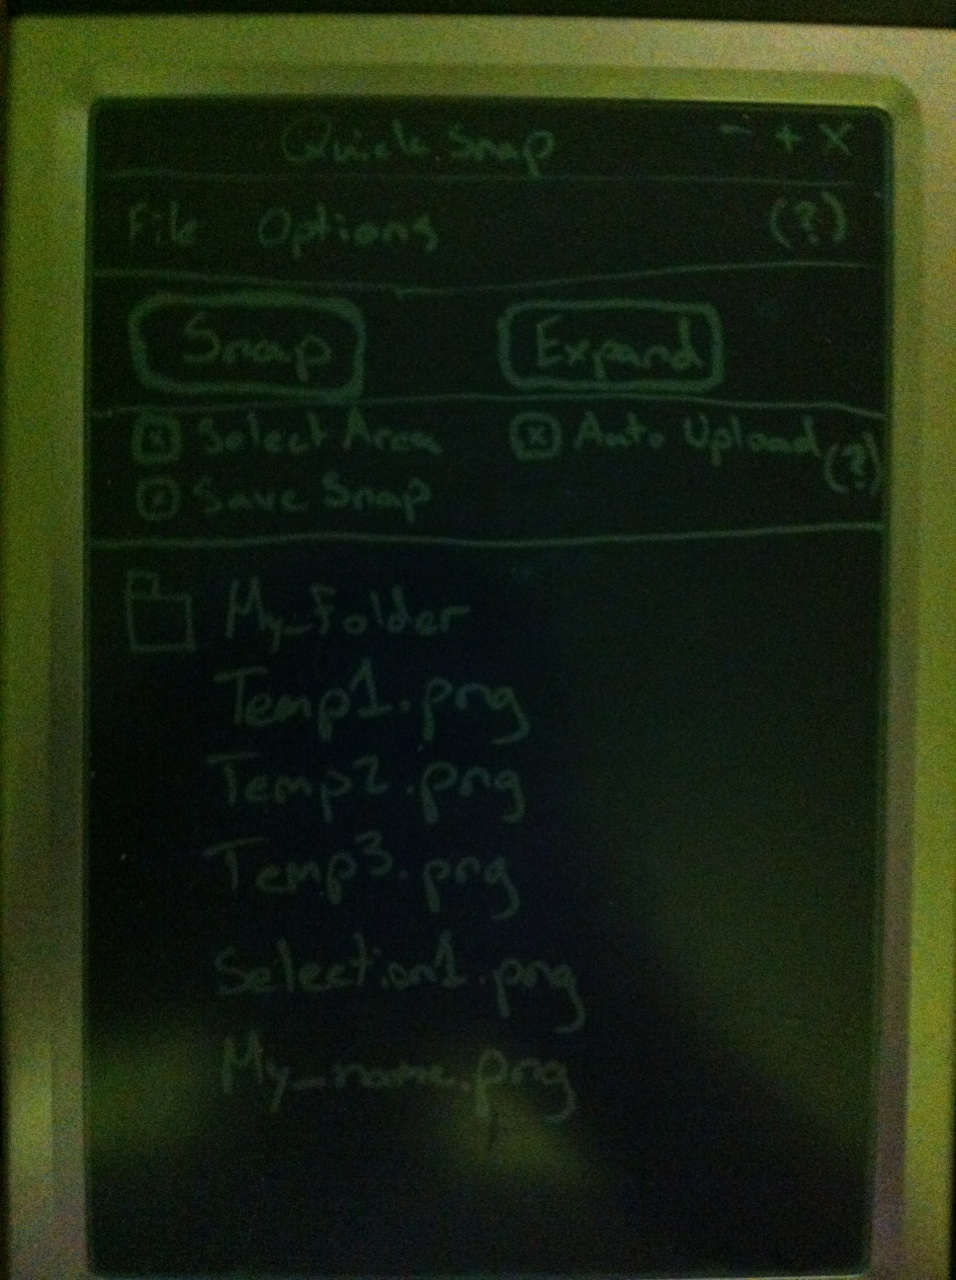 Quick Snap - + X
File Options (?)
Snap Expand
x Select Area x Auto Upload (?)
Save Snap
My_Folder
Temp1.png
Temp2.png
Temp3.png
Selection1.png
My_name.png